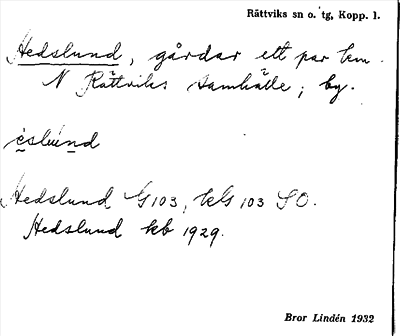 Rättviks sn o. tg, Kopp. l.
Hedslund, gårdar ett par km.
N Rättviks samhälle; by.
Hedslund G103, kls 103 SO.
Hedslund kb 1929.
Bror Lindén 1932